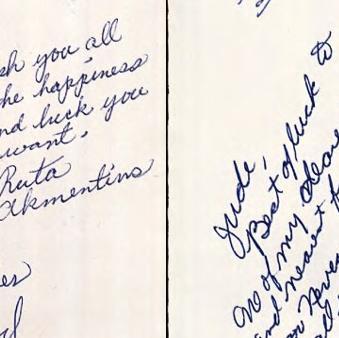 sh you all
he happiness
nd luck you
want.
Ruta
Akmentins
es
Jude,
Best of luck to
no of my deare
and nearest
or Never